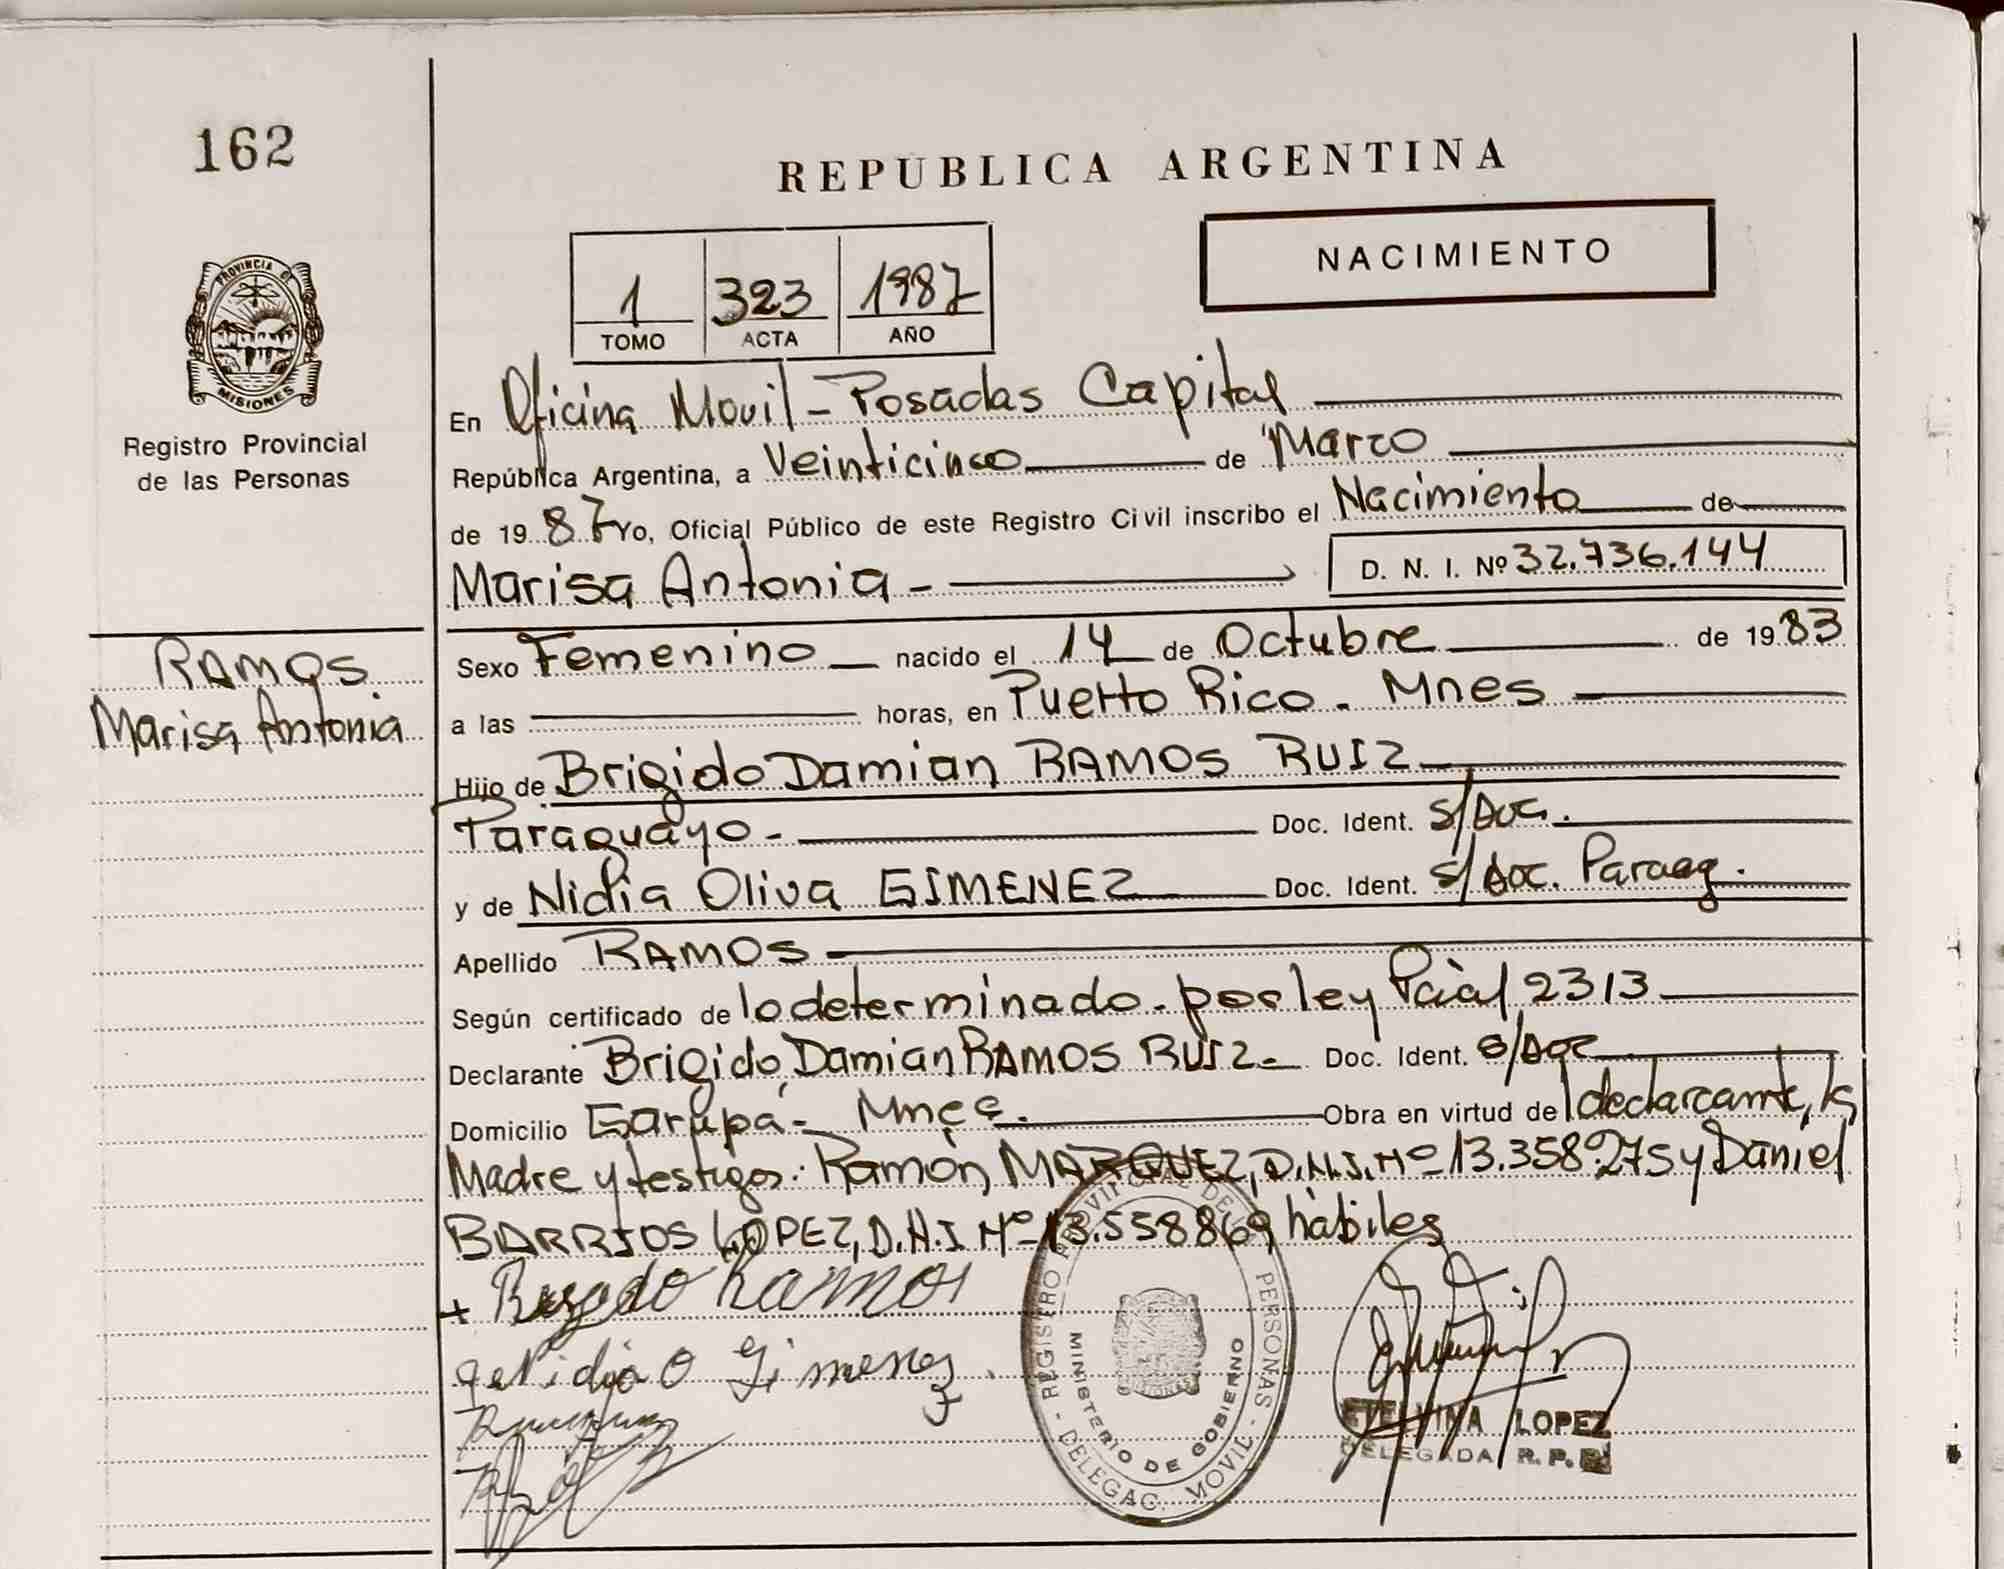 162
REPUBLICA ARGENTINA
NACIMIENTO
1 323 1987
TOMO ACTA AÑO
PROVINCIA DE
MISIONES
Registro Provincial
de las Personas
En Oficina Movil - Posadas Capital
República Argentina, a Veinticinco de Marzo
de 19 87 yo, Oficial Público de este Registro Civil inscribo el Nacimiento de
Marisa Antonia - D. N. I. Nº 32.736.144
RAMOS
Marisa Antonia
Sexo Femenino nacido el 14 de Octubre de 19 83
a las horas, en Puerto Rico. Mnes
Hijo de Brigido Damian RAMOS RUIZ
Paraguayo - Doc. Ident. s/Doc.
y de Nidia Oliva GIMENEZ Doc. Ident. s/Doc. Parag.
Apellido RAMOS
Según certificado de lo determinado. por ley Pcial 2313
Declarante Brigido Damian RAMOS RUIZ - Doc. Ident. s/Doc
Domicilio Garupá - Mnes. Obra en virtud de l declarcante, la
Madre y testigos: Ramón MARQUEZ, D.N.I. Nº 13.358.275 y Daniel
BARRIOS LOPEZ, D.N.I Nº 13.558869 hábiles
Ramos
Nidia O Gimenez
REGISTRO PROVINCIAL DE LAS PERSONAS - DELEGAC. MOVIL -
MINISTERIO DE GOBIERNO
MISIONES
ETELVINA LOPEZ
DELEGADA R. P. P.